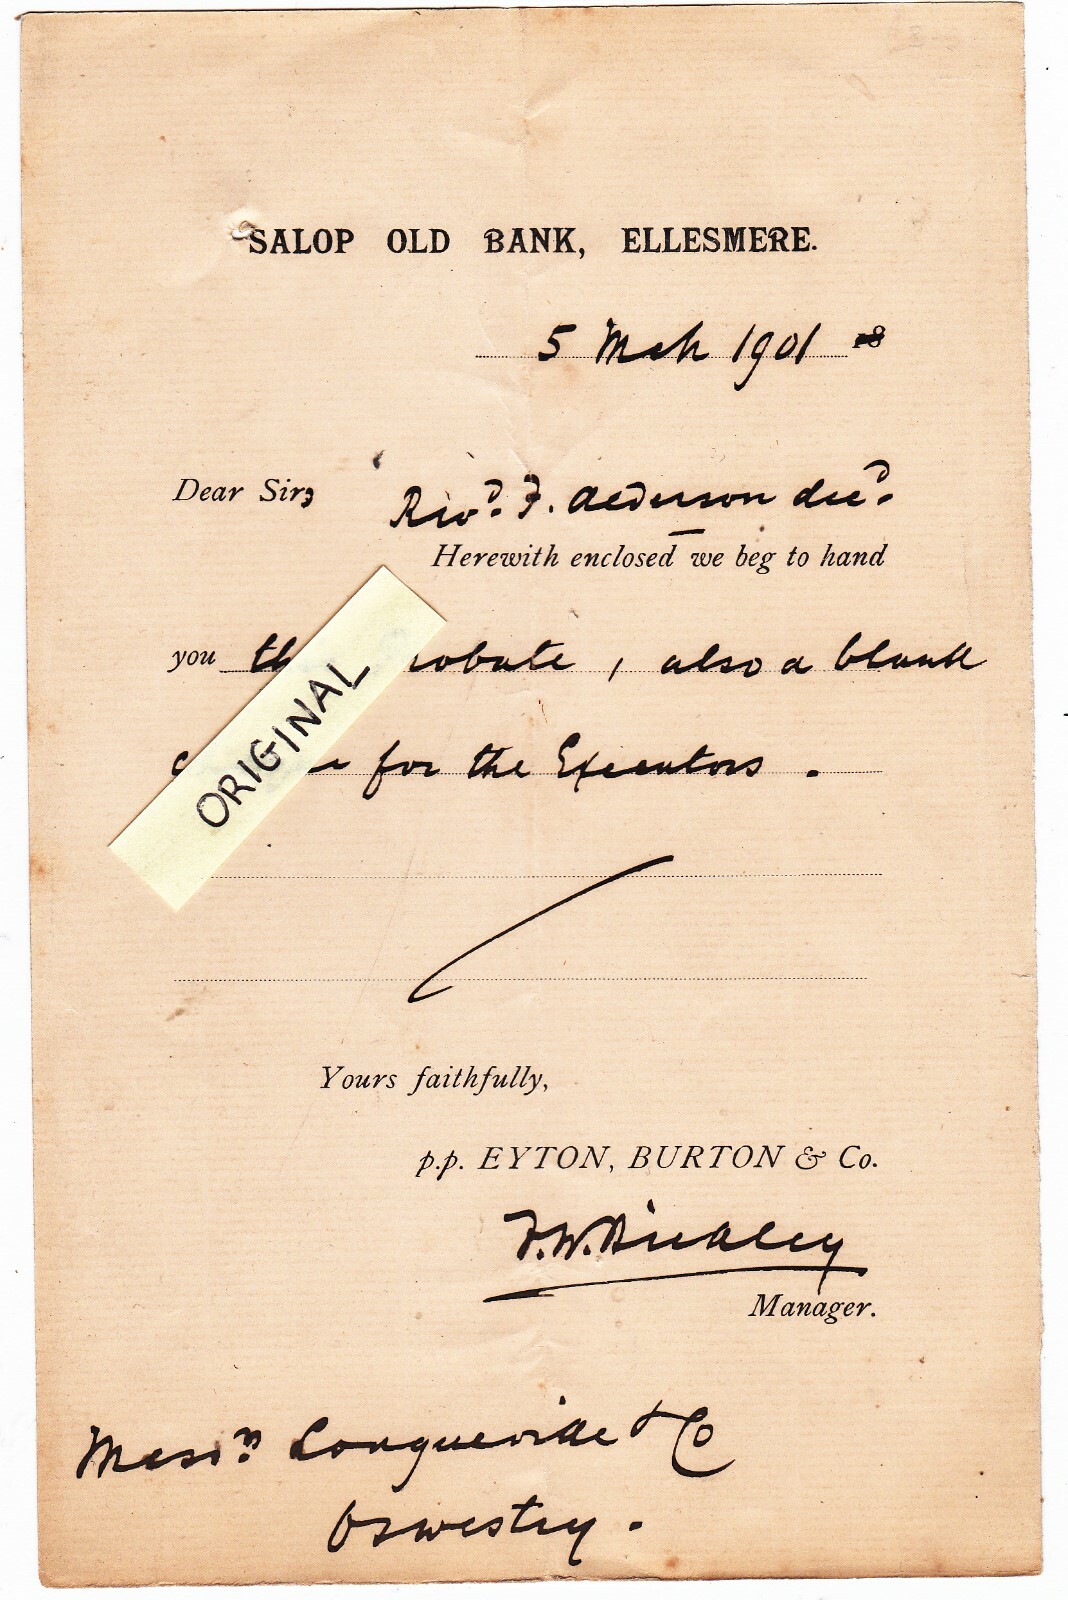 SALOP OLD BANK, ELLESMERE.
5 Mch 1901 18
Dear Sirs
Revd. F. Alderson decd.
Herewith enclosed we beg to hand
you th obate, also a blank
for the Executors.
ORIGINAL
Yours faithfully,
p.p. EYTON, BURTON & Co.
F. W.
Manager.
Messrs Longueville & Co
Oswestry.